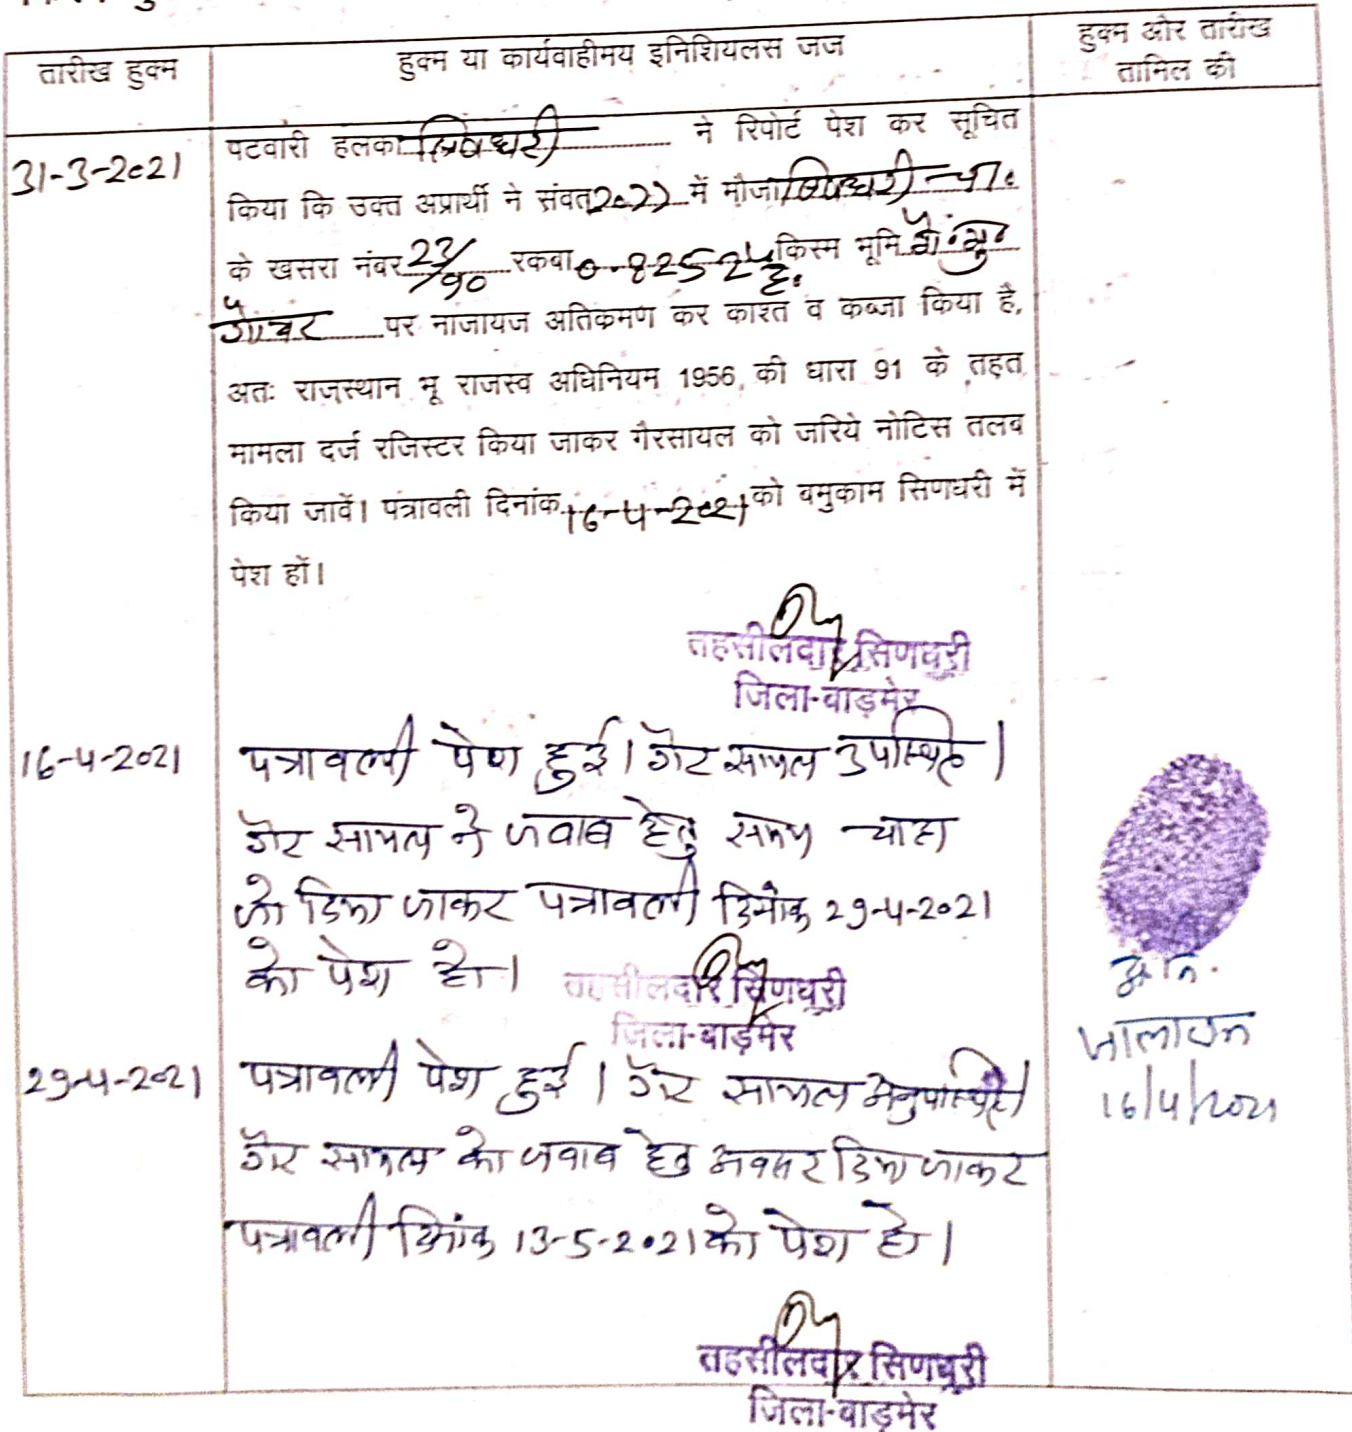 तारीख हुक्म
हुक्म या कार्यवाहीमय इनिशियलस जज
हुक्म और तारीख
तामिल की
31-3-2021
पटवारी हलका ने रिपोर्ट पेश कर सूचित
किया कि उक्त अप्रार्थी ने संवत में मौजा
के खसरा नंबर रकवा किस्म भूमि
गोचर पर नाजायज अतिकमण कर काश्त व कब्जा किया है,
अतः राजस्थान भू राजस्व अधिनियम 1956, की धारा 91 के तहत
मामला दर्ज रजिस्टर किया जाकर गैरसायल को जरिये नोटिस तलब
किया जावें। पत्रावली दिनांक 16-4-2021 को बमुकाम सिणधरी में
पेश हों।
तहसीलदार सिणधरी
जिला-बाड़मेर
16-4-2021
पत्रावली पेश हुई। गैर सायल उपस्थित।
गैर सायल ने जवाब हेतु समय चाहा
जो दिया जाकर पत्रावली दिनांक 29-4-2021
को पेश हो।
तहसीलदार सिणधरी
जिला-बाड़मेर
16/4/2021
29-4-2021
पत्रावली पेश हुई। गैर सायल अनुपस्थित।
गैर सायल को जवाब हेतु अवसर दिया जाकर
पत्रावली दिनांक 13-5-2021 को पेश हो।
तहसीलदार सिणधरी
जिला-बाड़मेर